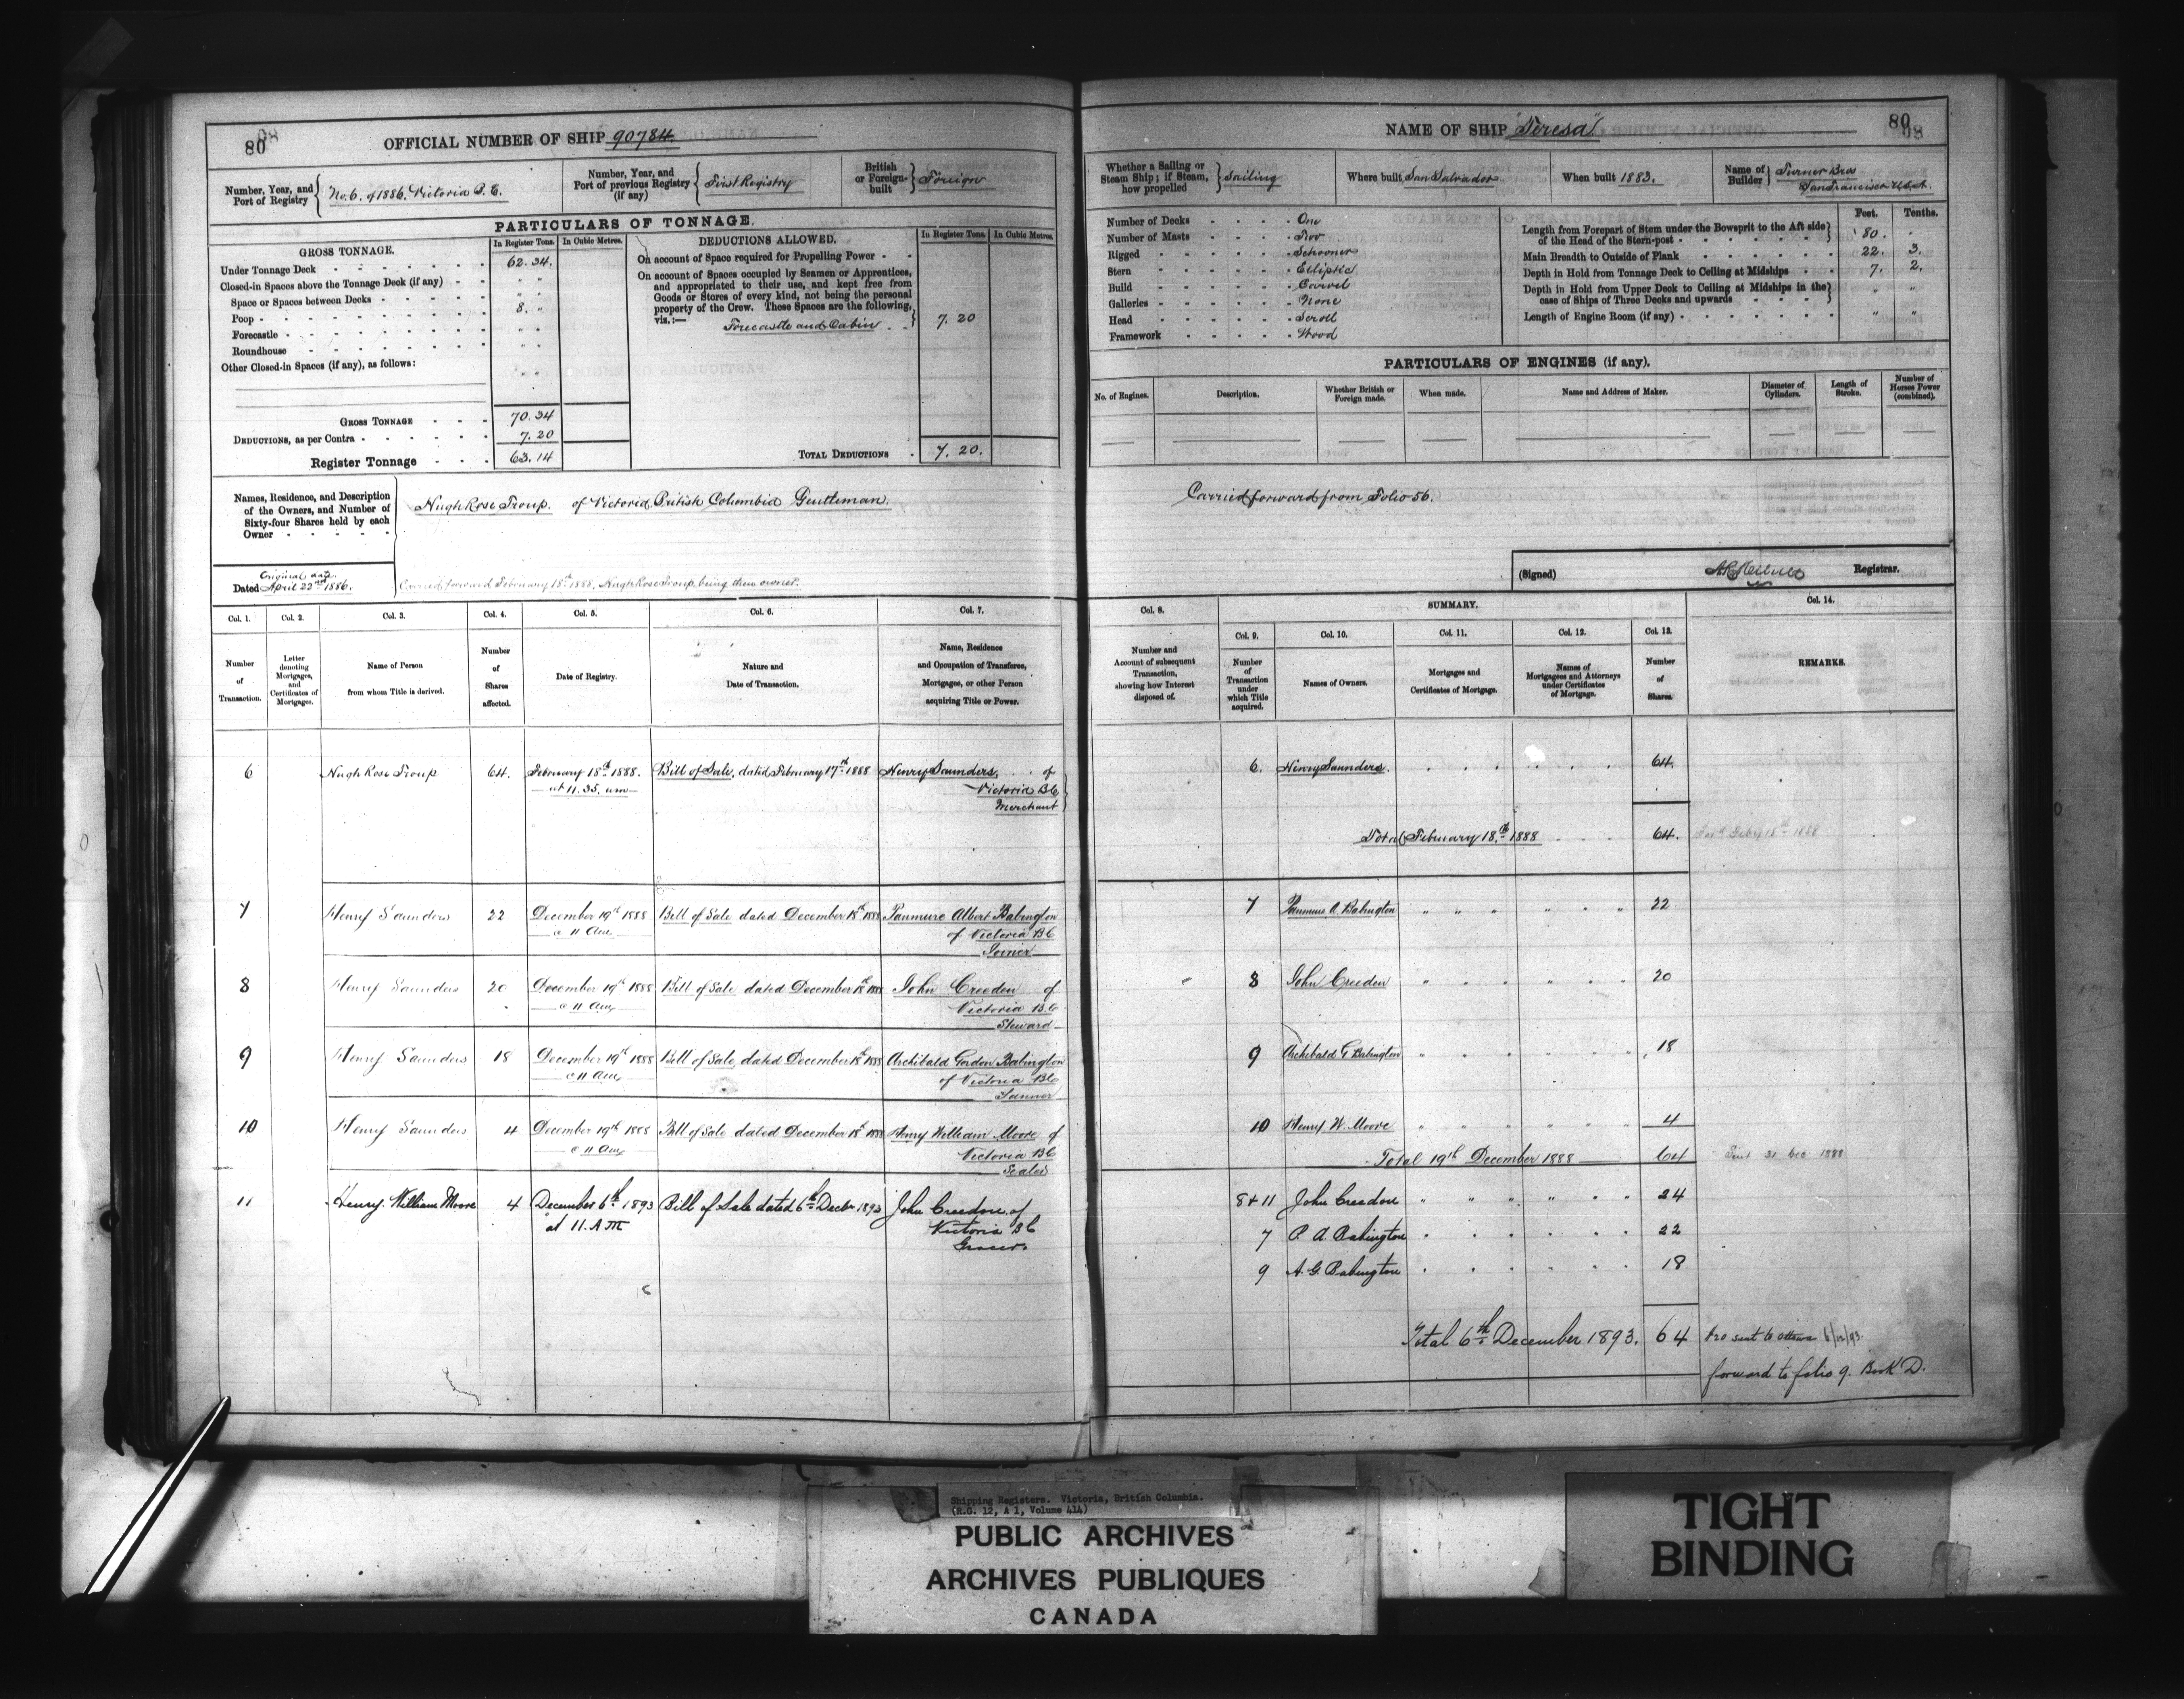 80
OFFICIAL NUMBER OF SHIP 90784.
Number, Year, and Port of Registry No. 6. of 1886. Victoria B. C.
Number, Year, and Port of previous Registry (if any) First Registry
British or Foreign-built Foreign
PARTICULARS OF TONNAGE.
GROSS TONNAGE.
In Register Tons. In Cubic Metres.
Under Tonnage Deck 62.34.
Closed-in Spaces above the Tonnage Deck (if any)
Space or Spaces between Decks
Poop 8. "
Forecastle
Roundhouse
Other Closed-in Spaces (if any), as follows:
GROSS TONNAGE 70.34
DEDUCTIONS, as per Contra 7.20
Register Tonnage 63.14
DEDUCTIONS ALLOWED.
In Register Tons. In Cubic Metres.
On account of Space required for Propelling Power
On account of Spaces occupied by Seamen or Apprentices,
and appropriated to their use, and kept free from
Goods or Stores of every kind, not being the personal
property of the Crew. These Spaces are the following,
viz.:—
Forecastle and Cabin 7.20
TOTAL DEDUCTIONS 7.20.
Names, Residence, and Description
of the Owners, and Number of
Sixty-four Shares held by each
Owner
Hugh Rose Troup. of Victoria, British Columbia Gentleman.
Original date
Dated April 22nd 1886.
Carried forward February 18th 1888, Hugh Rose Troup, being then owner.
Col. 1. Col. 2. Col. 3. Col. 4. Col. 5. Col. 6. Col. 7.
Number of Transaction.
Letter denoting Mortgages, and Certificates of Mortgages.
Name of Person from whom Title is derived.
Number of Shares affected.
Date of Registry.
Nature and Date of Transaction.
Name, Residence and Occupation of Transferee, Mortgagee, or other Person acquiring Title or Power.
6 Hugh Rose Troup 64. February 18th 1888. Bill of Sale, dated February 17th 1888 Henry Saunders, of
at 11.35. am Victoria BC
Merchant
7 Henry Saunders 22 December 19th 1888 Bill of Sale dated December 18th 1888 Panmure Albert Babington
@ 11 Am of Victoria BC
Joiner
8 Henry Saunders 20 December 19th 1888 Bill of Sale dated December 18th 1888 John Creeden of
@ 11 Am Victoria BC
Steward
9 Henry Saunders 18 December 19th 1888 Bill of Sale dated December 18th 1888 Archibald Gordon Babington
@ 11 Am of Victoria BC
10 Henry Saunders 4 December 19th 1888 Bill of Sale dated December 18th 1888 Henry William Moore of
@ 11 Am Victoria BC
Sealer
11 Henry William Moore 4 December 6th 1893 Bill of Sale dated 6th Decbr 1893 John Creeden of
at 11. A M Victoria BC
Grocer
80
NAME OF SHIP "Teresa"
Whether a Sailing or Steam Ship; if Steam, how propelled Sailing
Where built San Salvador
When built 1883.
Name of Builder Turner Bros
San Francisco U.S.A.
Number of Decks One
Number of Masts Two
Rigged Schooner
Stern Elliptic
Build Carvel
Galleries None
Head Scroll
Framework Wood
Feet. Tenths.
Length from Forepart of Stem under the Bowsprit to the Aft side
of the Head of the Stern-post 80. "
Main Breadth to Outside of Plank 22. 3.
Depth in Hold from Tonnage Deck to Ceiling at Midships 7. 2.
Depth in Hold from Upper Deck to Ceiling at Midships in the
case of Ships of Three Decks and upwards " "
Length of Engine Room (if any) " "
PARTICULARS OF ENGINES (if any).
No. of Engines. Description. Whether British or Foreign made. When made. Name and Address of Maker. Diameter of Cylinders. Length of Stroke. Number of Horses Power (combined).
Carried forward from Folio 56.
(Signed) Registrar.
SUMMARY.
Col. 8. Col. 9. Col. 10. Col. 11. Col. 12. Col. 13. Col. 14.
Number and Account of subsequent Transaction, showing how Interest disposed of.
Number of Transaction under which Title acquired.
Names of Owners.
Mortgages and Certificates of Mortgage.
Names of Mortgagees and Attorneys under Certificates of Mortgage.
Number of Shares.
REMARKS.
6. Henry Saunders. 64.
Total February 18th 1888 64. Feby 18th 1888
7 Panmure A. Babington " " " " " " 22
8 John Creeden 20
9 Archibald G Babington 18
10 Henry W. Moore 4
Total 19th December 1888 64 Sent 31 Dec 1888
8+11 John Creeden 24
7 P. A. Babington 22
9 A. G. Babington 18
Total 6th December 1893. 64 sent to Ottawa 6/12/93.
forward to folio 9. Book D.
Shipping Registers. Victoria, British Columbia.
(R.G. 12, A 1, Volume 414)
PUBLIC ARCHIVES
ARCHIVES PUBLIQUES
CANADA
TIGHT
BINDING